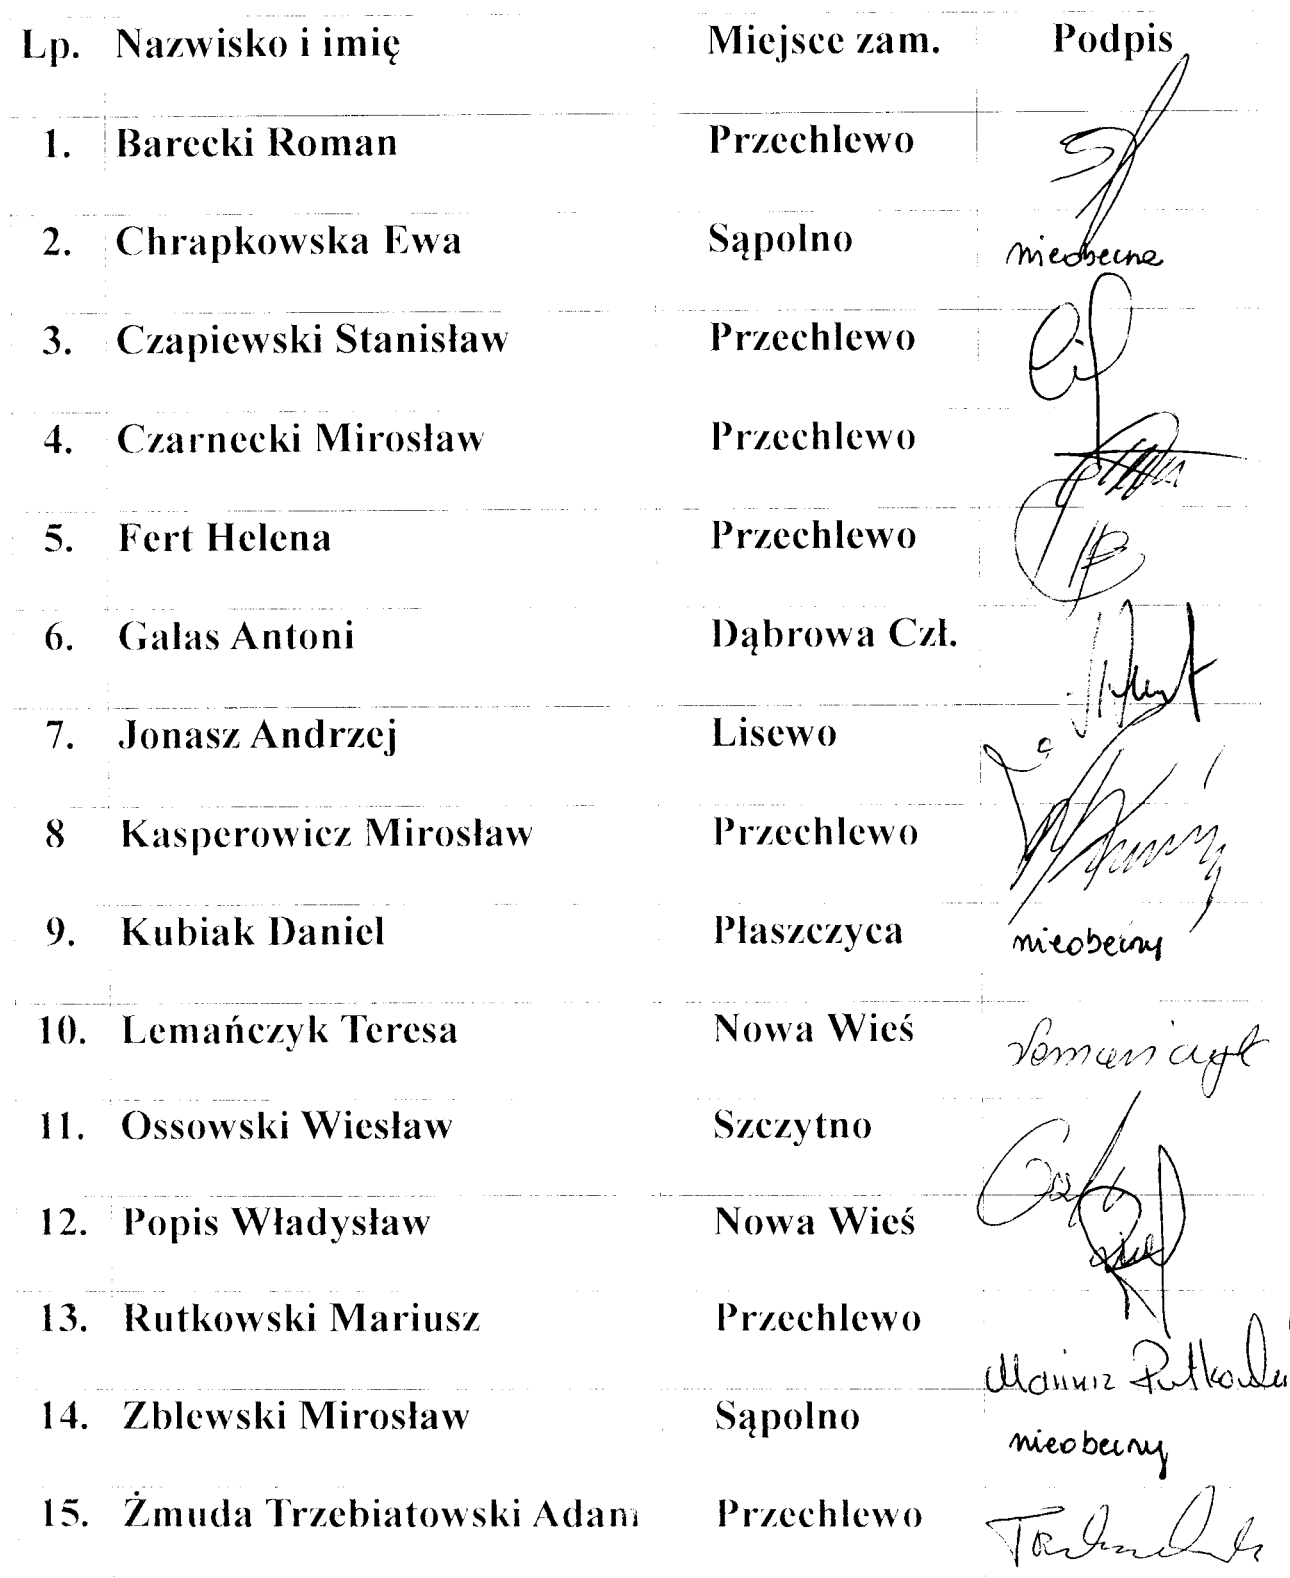 Lp. Nazwisko i imię Miejsce zam. Podpis
1. Barecki Roman Przechlewo
2. Chrapkowska Ewa Sąpolno nieobecna
3. Czapiewski Stanisław Przechlewo
4. Czarnecki Mirosław Przechlewo
5. Fert Helena Przechlewo
6. Galas Antoni Dąbrowa Czł.
7. Jonasz Andrzej Lisewo
8 Kasperowicz Mirosław Przechlewo
9. Kubiak Daniel Płaszczyca nieobecny
10. Lemańczyk Teresa Nowa Wieś Lemańczyk
11. Ossowski Wiesław Szczytno
12. Popis Władysław Nowa Wieś
13. Rutkowski Mariusz Przechlewo Mariusz Rutkowski
14. Zblewski Mirosław Sąpolno nieobecny
15. Żmuda Trzebiatowski Adam Przechlewo